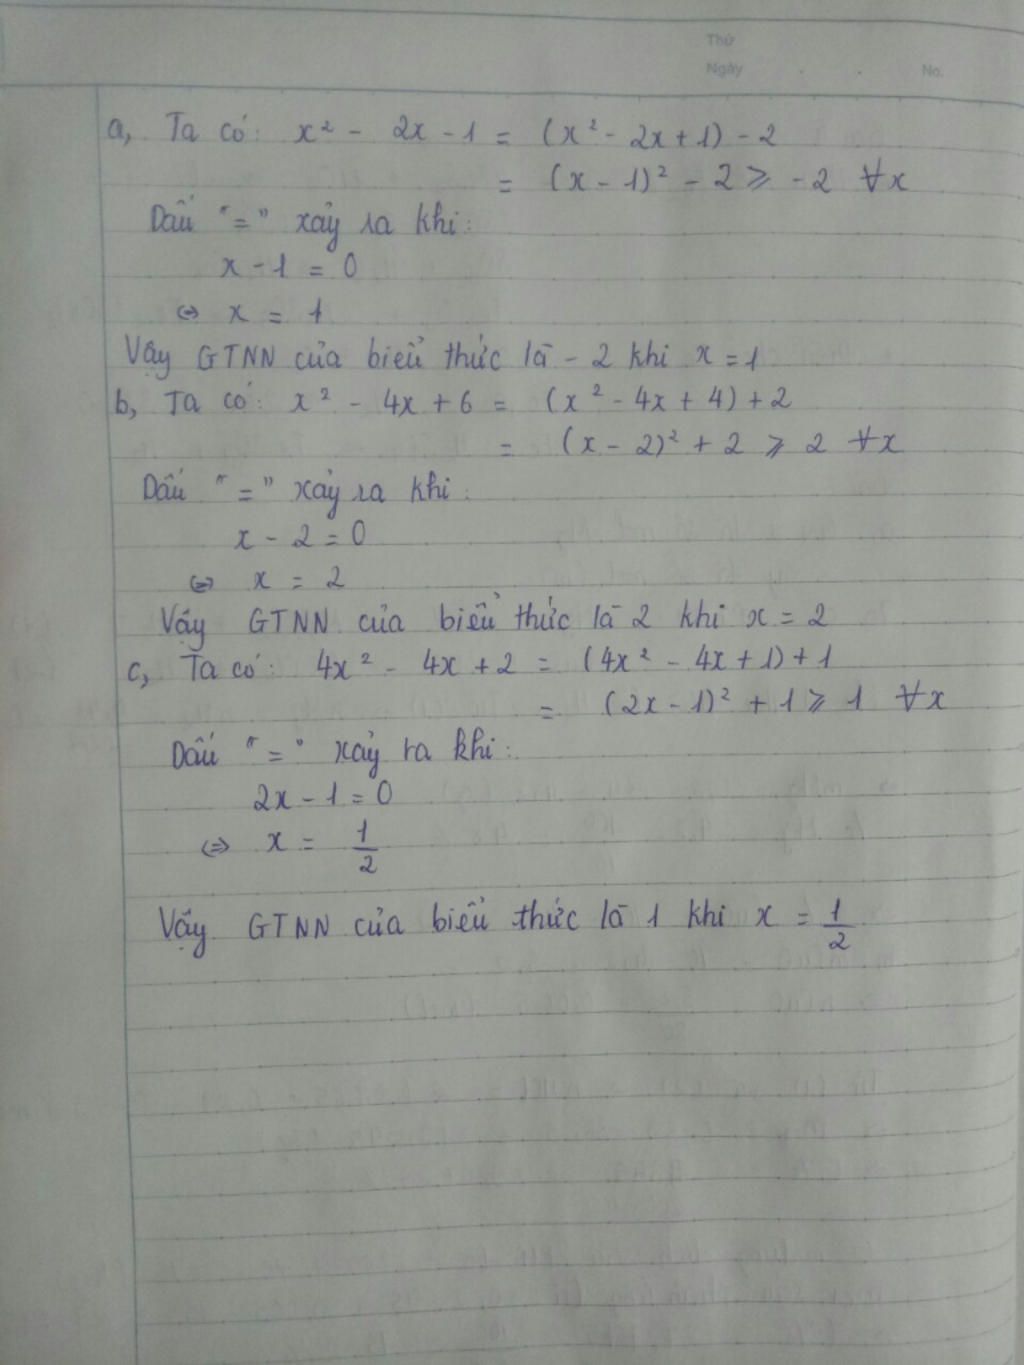 Thứ
Ngày . . No.
a, Ta có: x² - 2x - 1 = (x² - 2x + 1) - 2
= (x - 1)² - 2 ⩾ -2 ∀x
Dấu "=" xảy ra khi:
x - 1 = 0
⇔ x = 1
Vậy GTNN của biểu thức là - 2 khi x = 1
b, Ta có: x² - 4x + 6 = (x² - 4x + 4) + 2
= (x - 2)² + 2 ⩾ 2 ∀x
Dấu "=" xảy ra khi:
x - 2 = 0
⇔ x = 2
Vậy GTNN của biểu thức là 2 khi x = 2
c, Ta có: 4x² - 4x + 2 = (4x² - 4x + 1) + 1
= (2x - 1)² + 1 ⩾ 1 ∀x
Dấu "=" xảy ra khi:
2x - 1 = 0
⇔ x = 1/2
Vậy GTNN của biểu thức là 1 khi x = 1/2